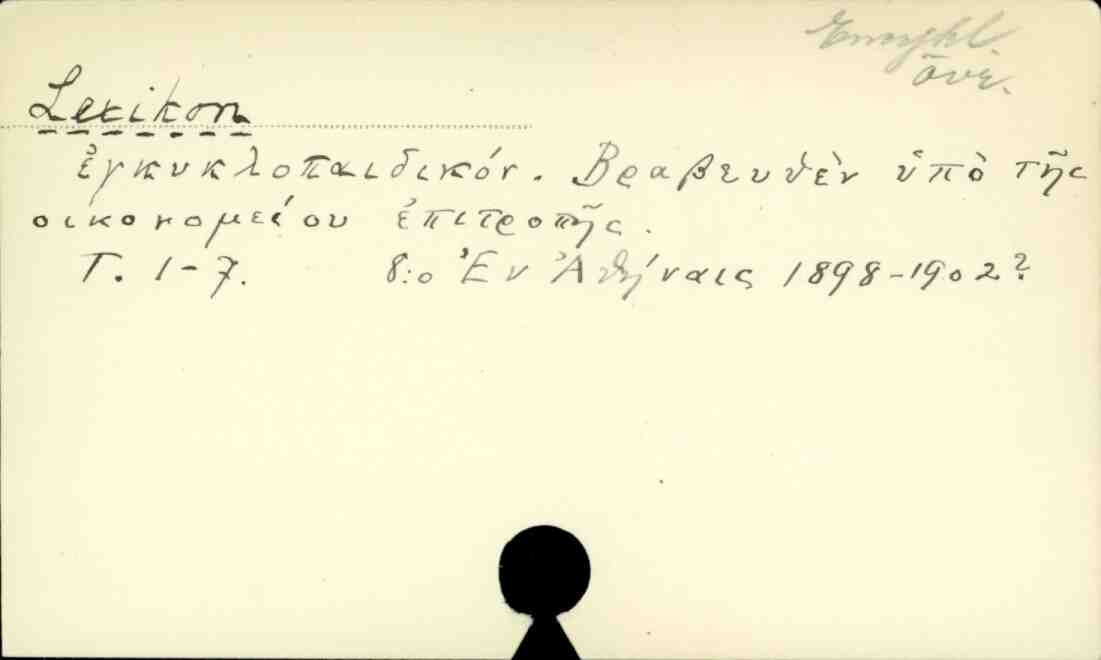 Encykl.
övr.
Lexikon
ἐγκυκλοπαιδικόν. Βραβευθὲν ὑπὸ τῆς
οἰκονομείου ἐπιτροπῆς.
Τ. 1-7. 8:o Ἐν Ἀθήναις 1898-1902?